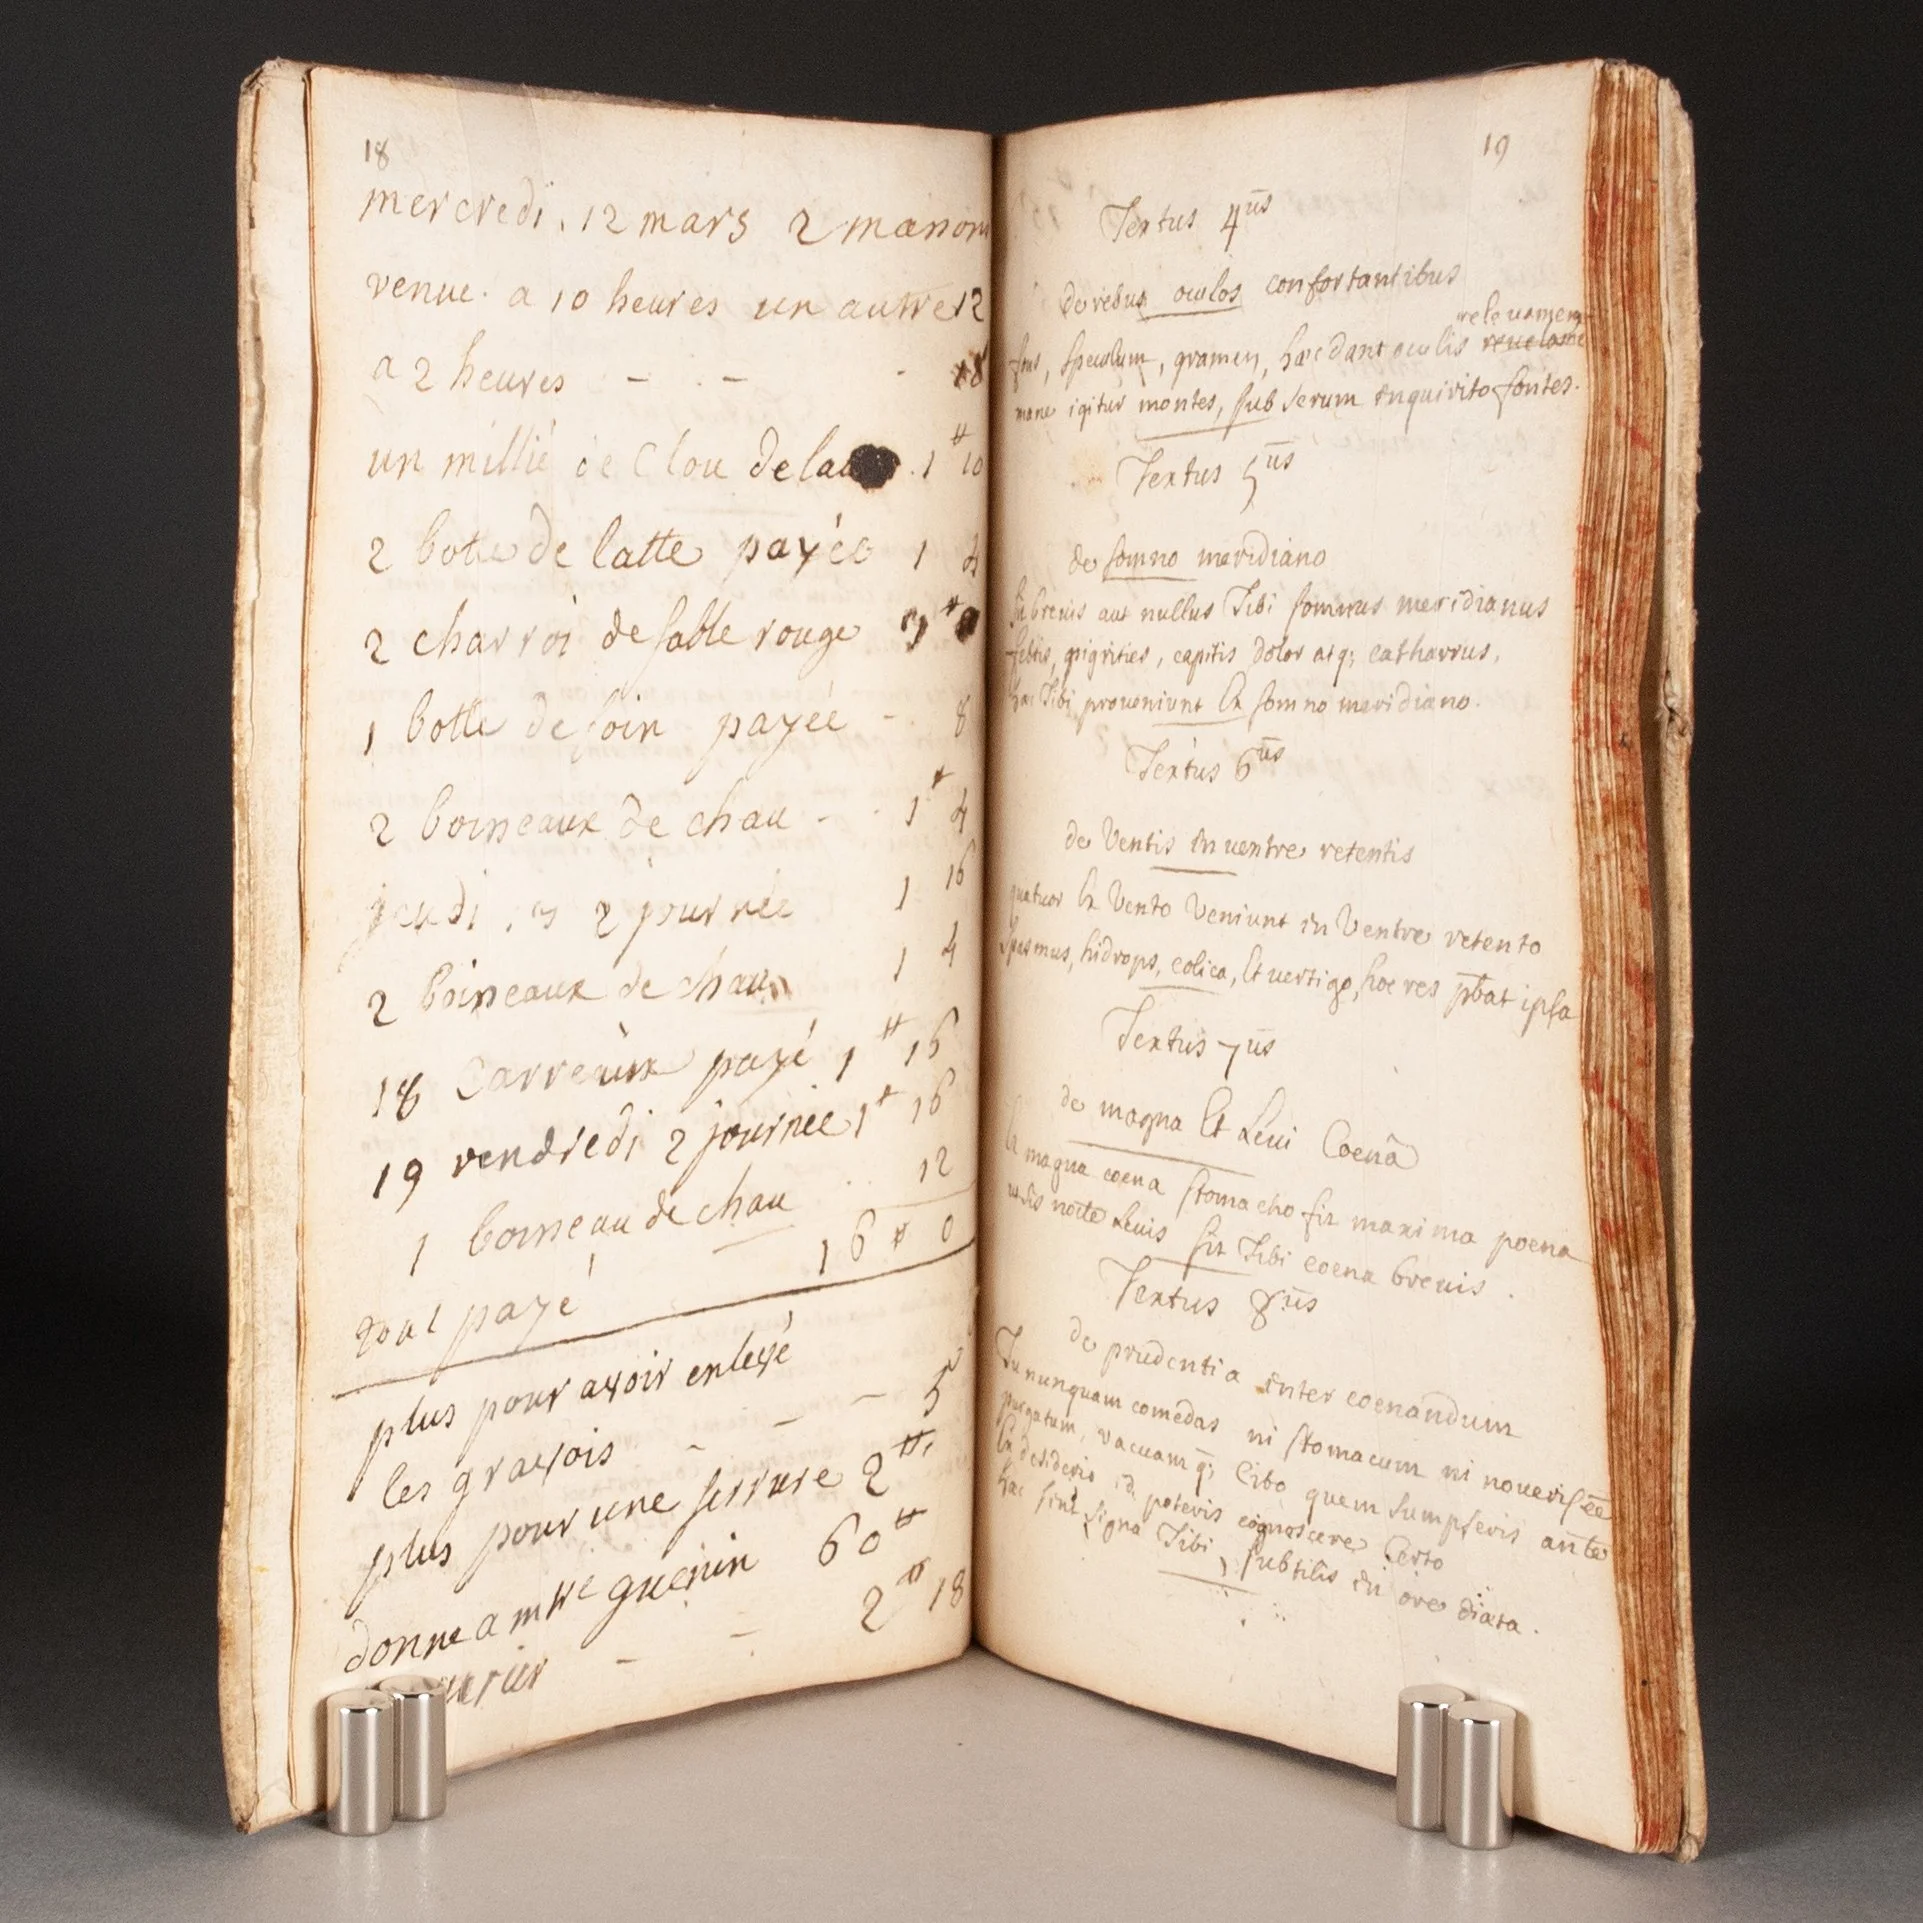 18
mercredi. 12 mars 2 manom
venue. a 10 heures un autre 12
a 2 heures - - - 18
un millié de Clou de . 1 # 10
2 botte de latte payéé 1 4
2 charroi de sable rouge 3 #
1 botte de foin payéé - 8
2 boineaux de chau - - 1 # 4
jeudi . 2 journéé 1 16
2 boineaux de chau 1 4
18 Carreaux payé 1 # 16
19 vendredi 2 journéé 1 # 16
1 boineau de chau .. 12
16 # 0
tout payé
plus pour avoir enlevé
les gravois - - - 5
plus pour une serrure 2 #
donne a mtre guenin 60 #
- - 2 # 18
19
Textus 4us
de rebus oculos confortantibus
relevamen
fons, speculum, gramen, hæc dant oculis
mane igitur montes, sub serum inquirito fontes.
Textus 5us
de somno meridiano
sit brevis aut nullus Tibi somnus meridianus
febris, pigrities, capitis dolor atq; catharrus,
hæc Tibi proveniunt Ex somno meridiano.
Textus 6us
de Ventis in ventre retentis
quatuor Ex Vento Veniunt in Ventre retento
spasmus, hidrops, colica, Et vertigo, hoc res pbat ipsa
Textus 7us
de magna Et Levi Coenâ
Ex magna coena stomacho fit maxima poena
ut sis nocte Levis sit Tibi coena brevis.
Textus 8us
de prudentia inter coenandum
Tu nunquam comedas ni stomacum ni noveris ēē
purgatum, vacuamq; Cibo quem sumpseris ante
Ex desiderio id poteris cognoscere Certo
hæc sint signa Tibi, subtilis in ore diæta.